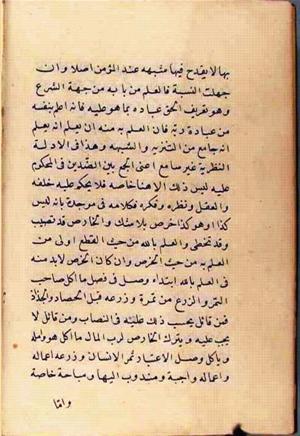 بها لا يقدح فيها متشبه عند المؤمن اصلا وان
جهلت النسبة فالعلم من بابه من جهة الشرع
وهو تعريف الحق عباده بما هو عليه فانه اعلم بنفسه
من عباده به فان العلم به منه ان يعلم انه يعلم
انه جامع بين التنزيه والتشبيه وهذا في الادلة
النظرية غير سايغ اعنى الجمع بين الضدين في المحكوم
عليه ليس ذلك الا هنا خاصة فلا يحكم عليه خلقه
والعقل ونظره وفكره فكلامه في موجده بانه ليس
كذا او هو كذا خرص بلا شك والخارص قد يصيب
وقد يخطئ والعلم بالله من حيث القطع اولى من
العلم به من حيث الخرص وان كان الخرص لا بد منه
في العلم بالله ابتداء وصل في فصل ما اكل صاحب
التمر والزرع من تمره وزرعه قبل الحصاد والجذاذ
فمن قائل يحسب ذلك عليه في النصاب ومن قائل لا
يجب عليه ويترك الخارص لرب المال ما اكل هو واهله
وياكل وصل الاعتبار ثمر الانسان وزرعه اعماله
واعماله واجبة ومندوب اليها ومباحة خاصة
واما